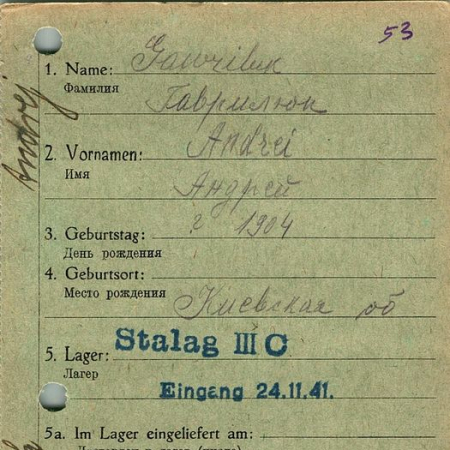 53
Andrej
1. Name: Gawriluk
Фамилия
Гаврилюк
2. Vornamen: Andrei
Имя
Андрей
3. Geburtstag: ? 1904
День рождения
4. Geburtsort:
Место рождения Киевская об
Stalag III C
5. Lager:
Лагерь
Eingang 24.11.41.
5a. Im Lager eingeliefert am: